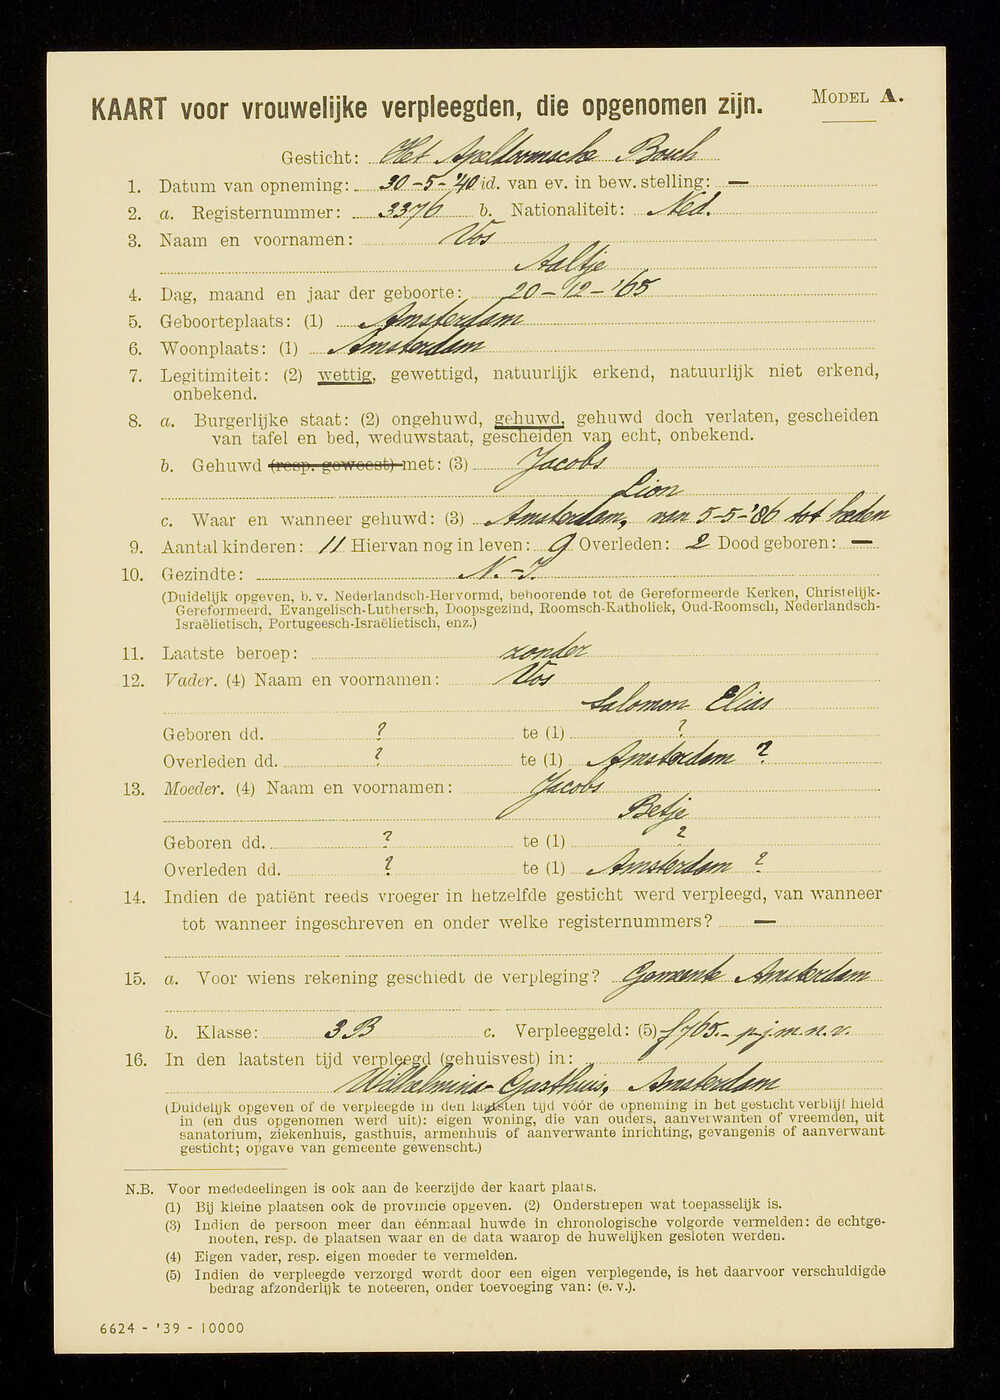 KAART voor vrouwelijke verpleegden, die opgenomen zijn. MODEL A.
Gesticht: Het Apeldoornsche Bosch
1. Datum van opneming: 30-5-'40 id. van ev. in bew. stelling: —
2. a. Registernummer: 3376 b. Nationaliteit: Ned.
3. Naam en voornamen: Vos
Aaltje
4. Dag, maand en jaar der geboorte: 20-12-'65
5. Geboorteplaats: (1) Amsterdam
6. Woonplaats: (1) Amsterdam
7. Legitimiteit: (2) wettig, gewettigd, natuurlijk erkend, natuurlijk niet erkend,
onbekend.
8. a. Burgerlijke staat: (2) ongehuwd, gehuwd, gehuwd doch verlaten, gescheiden
van tafel en bed, weduwstaat, gescheiden van echt, onbekend.
b. Gehuwd (resp. geweest) met: (3) Jacobs
Lion
c. Waar en wanneer gehuwd: (3) Amsterdam, van 5-5-'86 tot heden
9. Aantal kinderen: 11 Hiervan nog in leven: 9 Overleden: 2 Dood geboren: —
10. Gezindte: N.-I.
(Duidelijk opgeven, b.v. Nederlandsch-Hervormd, behoorende tot de Gereformeerde Kerken, Christelijk-
Gereformeerd, Evangelisch-Luthersch, Doopsgezind, Roomsch-Katholiek, Oud-Roomsch, Nederlandsch-
Israëlietisch, Portugeesch-Israëlietisch, enz.)
11. Laatste beroep: zonder
12. Vader. (4) Naam en voornamen: Vos
Salomon Elias
Geboren dd. ? te (1) ?
Overleden dd. ? te (1) Amsterdam ?
13. Moeder. (4) Naam en voornamen: Jacobs
Betje
Geboren dd. ? te (1) ?
Overleden dd. ? te (1) Amsterdam ?
14. Indien de patiënt reeds vroeger in hetzelfde gesticht werd verpleegd, van wanneer
tot wanneer ingeschreven en onder welke registernummers? —
15. a. Voor wiens rekening geschiedt de verpleging? Gemeente Amsterdam
b. Klasse: 3B c. Verpleeggeld: (5) f 765.- p.j.m.n.v.
16. In den laatsten tijd verpleegd (gehuisvest) in:
Wilhelmina-Gasthuis, Amsterdam
(Duidelijk opgeven of de verpleegde in den laatsten tijd vóór de opneming in het gesticht verblijf hield
in (en dus opgenomen werd uit): eigen woning, die van ouders, aanverwanten of vreemden, uit
sanatorium, ziekenhuis, gasthuis, armenhuis of aanverwante inrichting, gevangenis of aanverwant
gesticht; opgave van gemeente gewenscht.)
N.B. Voor mededeelingen is ook aan de keerzijde der kaart plaats.
(1) Bij kleine plaatsen ook de provincie opgeven. (2) Onderstrepen wat toepasselijk is.
(3) Indien de persoon meer dan éénmaal huwde in chronologische volgorde vermelden: de echtge-
nooten, resp. de plaatsen waar en de data waarop de huwelijken gesloten werden.
(4) Eigen vader, resp. eigen moeder te vermelden.
(5) Indien de verpleegde verzorgd wordt door een eigen verplegende, is het daarvoor verschuldigde
bedrag afzonderlijk te noteeren, onder toevoeging van: (e. v.).
6624 - '39 - 10000